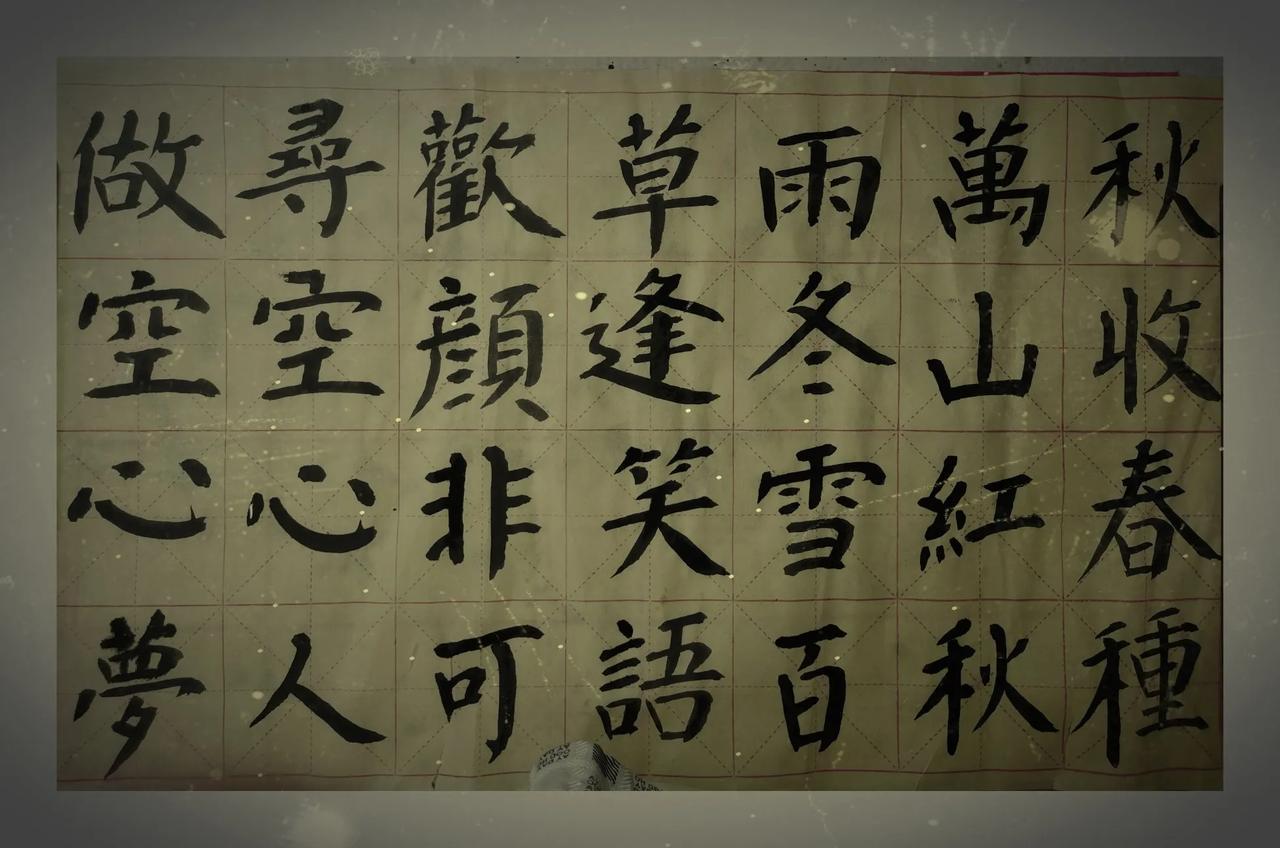 秋收春種
萬山紅秋
雨冬雪百
草逢笑語
歡顔非可
尋空心人
做空心夢